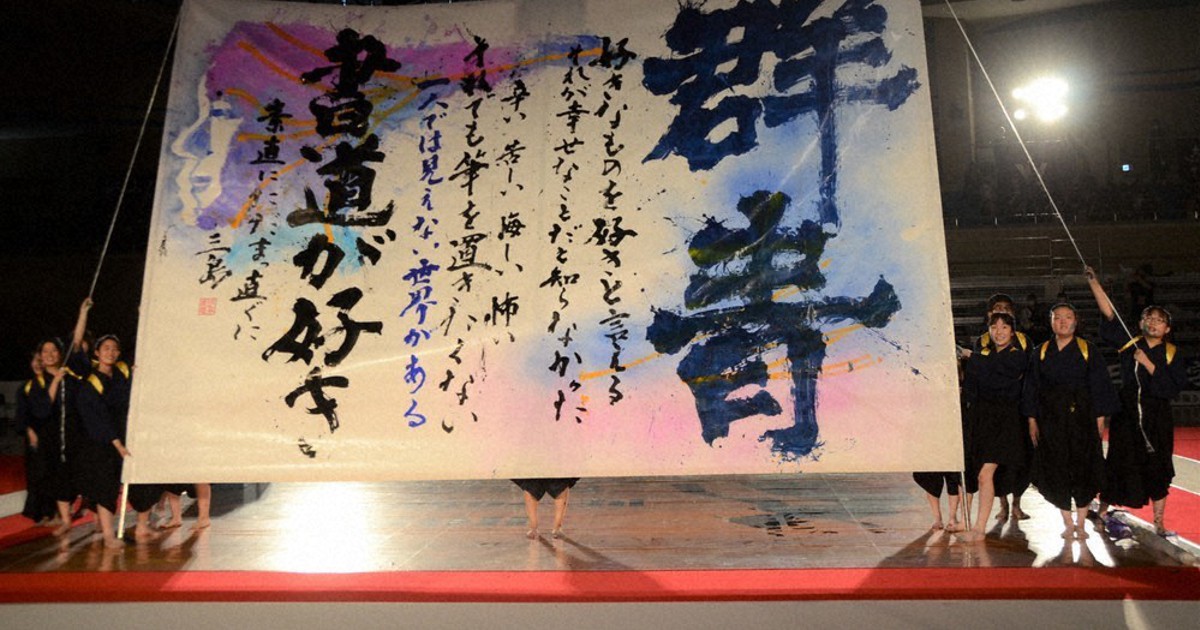 群青
好きなものを好きと言える
それが幸せなことだと知らなかった
辛い 苦しい 悔しい 怖い
それでも筆を置きたくない
一人では見えない世界がある
書道が好き
素直にひたすらまっ直ぐに
三島